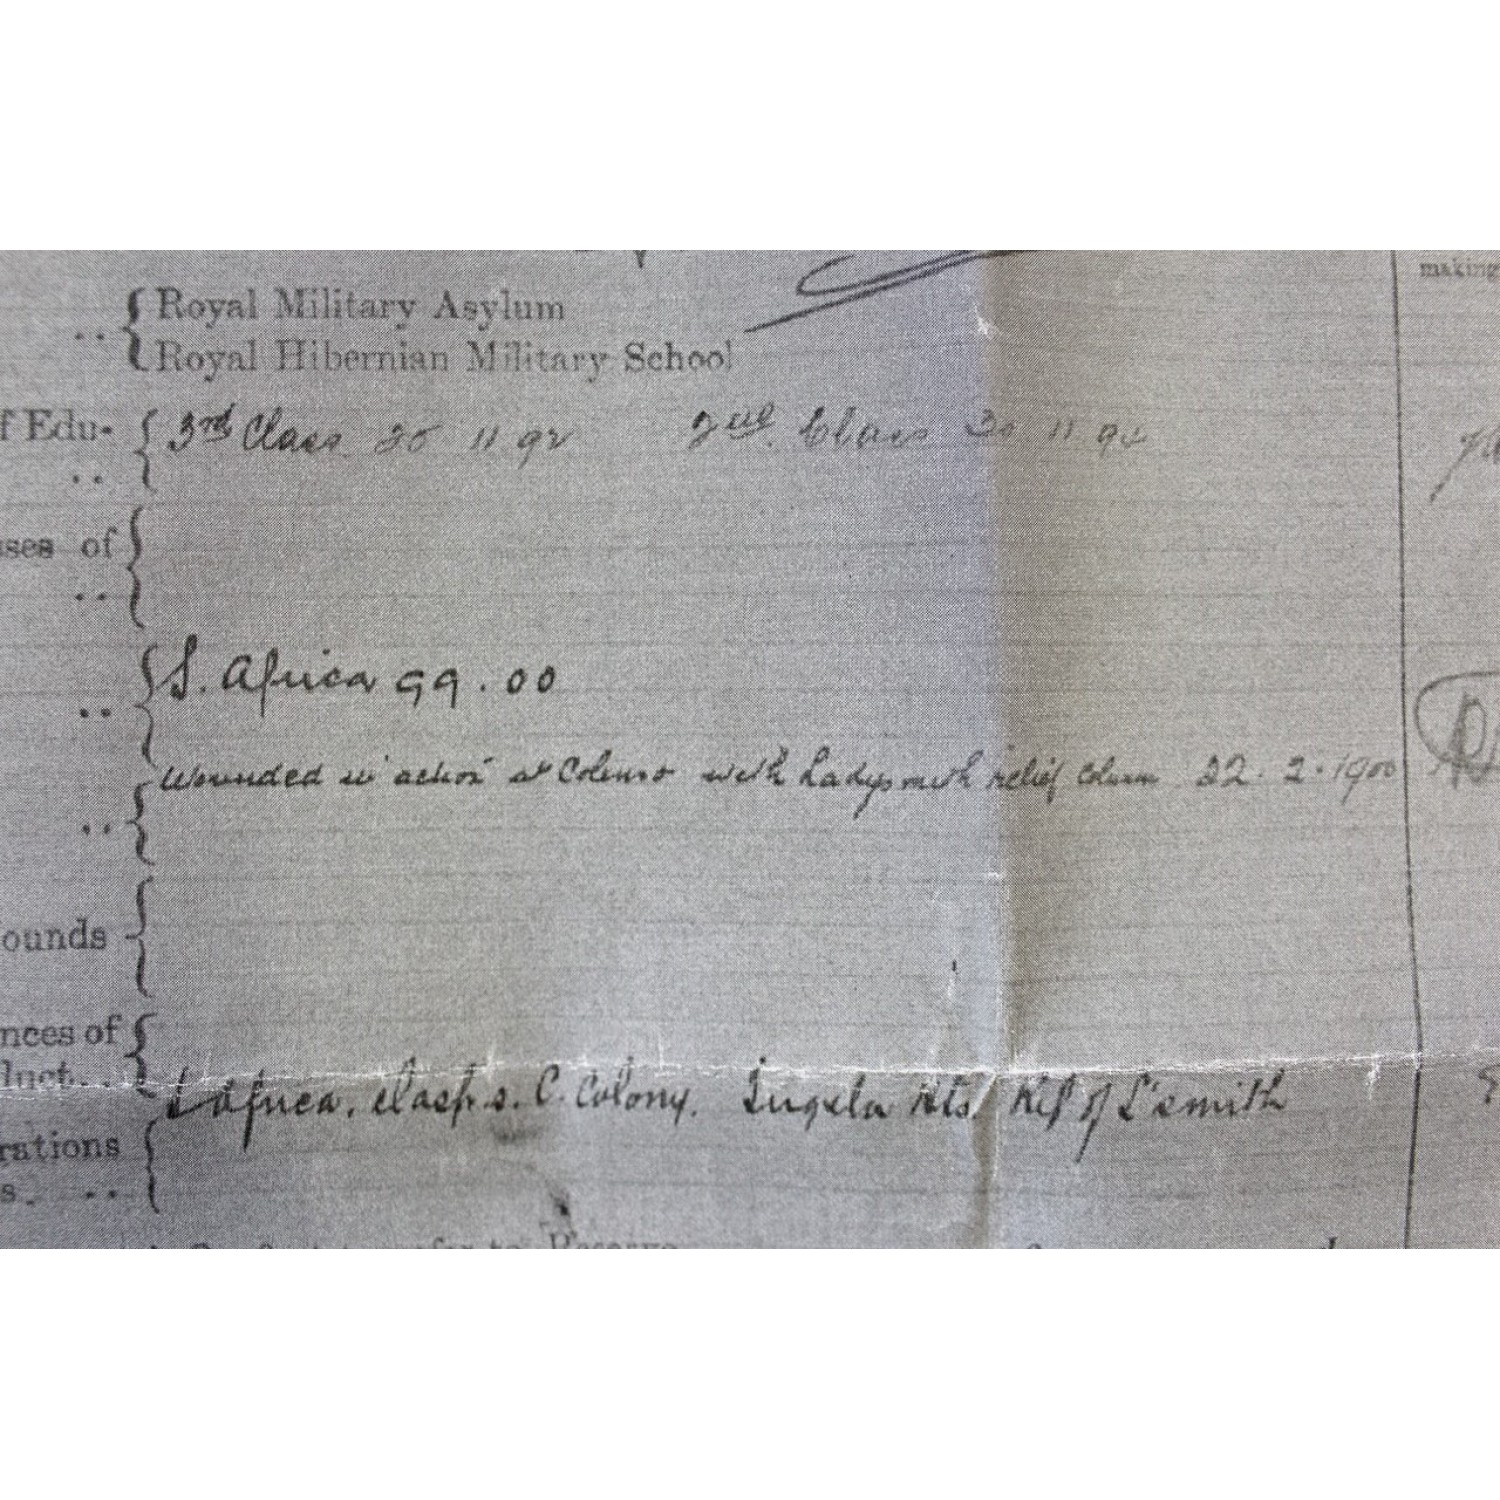 making
Royal Military Asylum
Royal Hibernian Military School
f Edu- 3rd Class 11 92 2nd Class 30 11 92
ses of
S. Africa 99.00
Wounded in action at Colenso with Ladysmith relief Colum 22.2.1900
ounds
nces of
duct..
S Africa, clasps. C. Colony. Tugela Hts. Rlf of L'smith
rations
s.
to Reserve